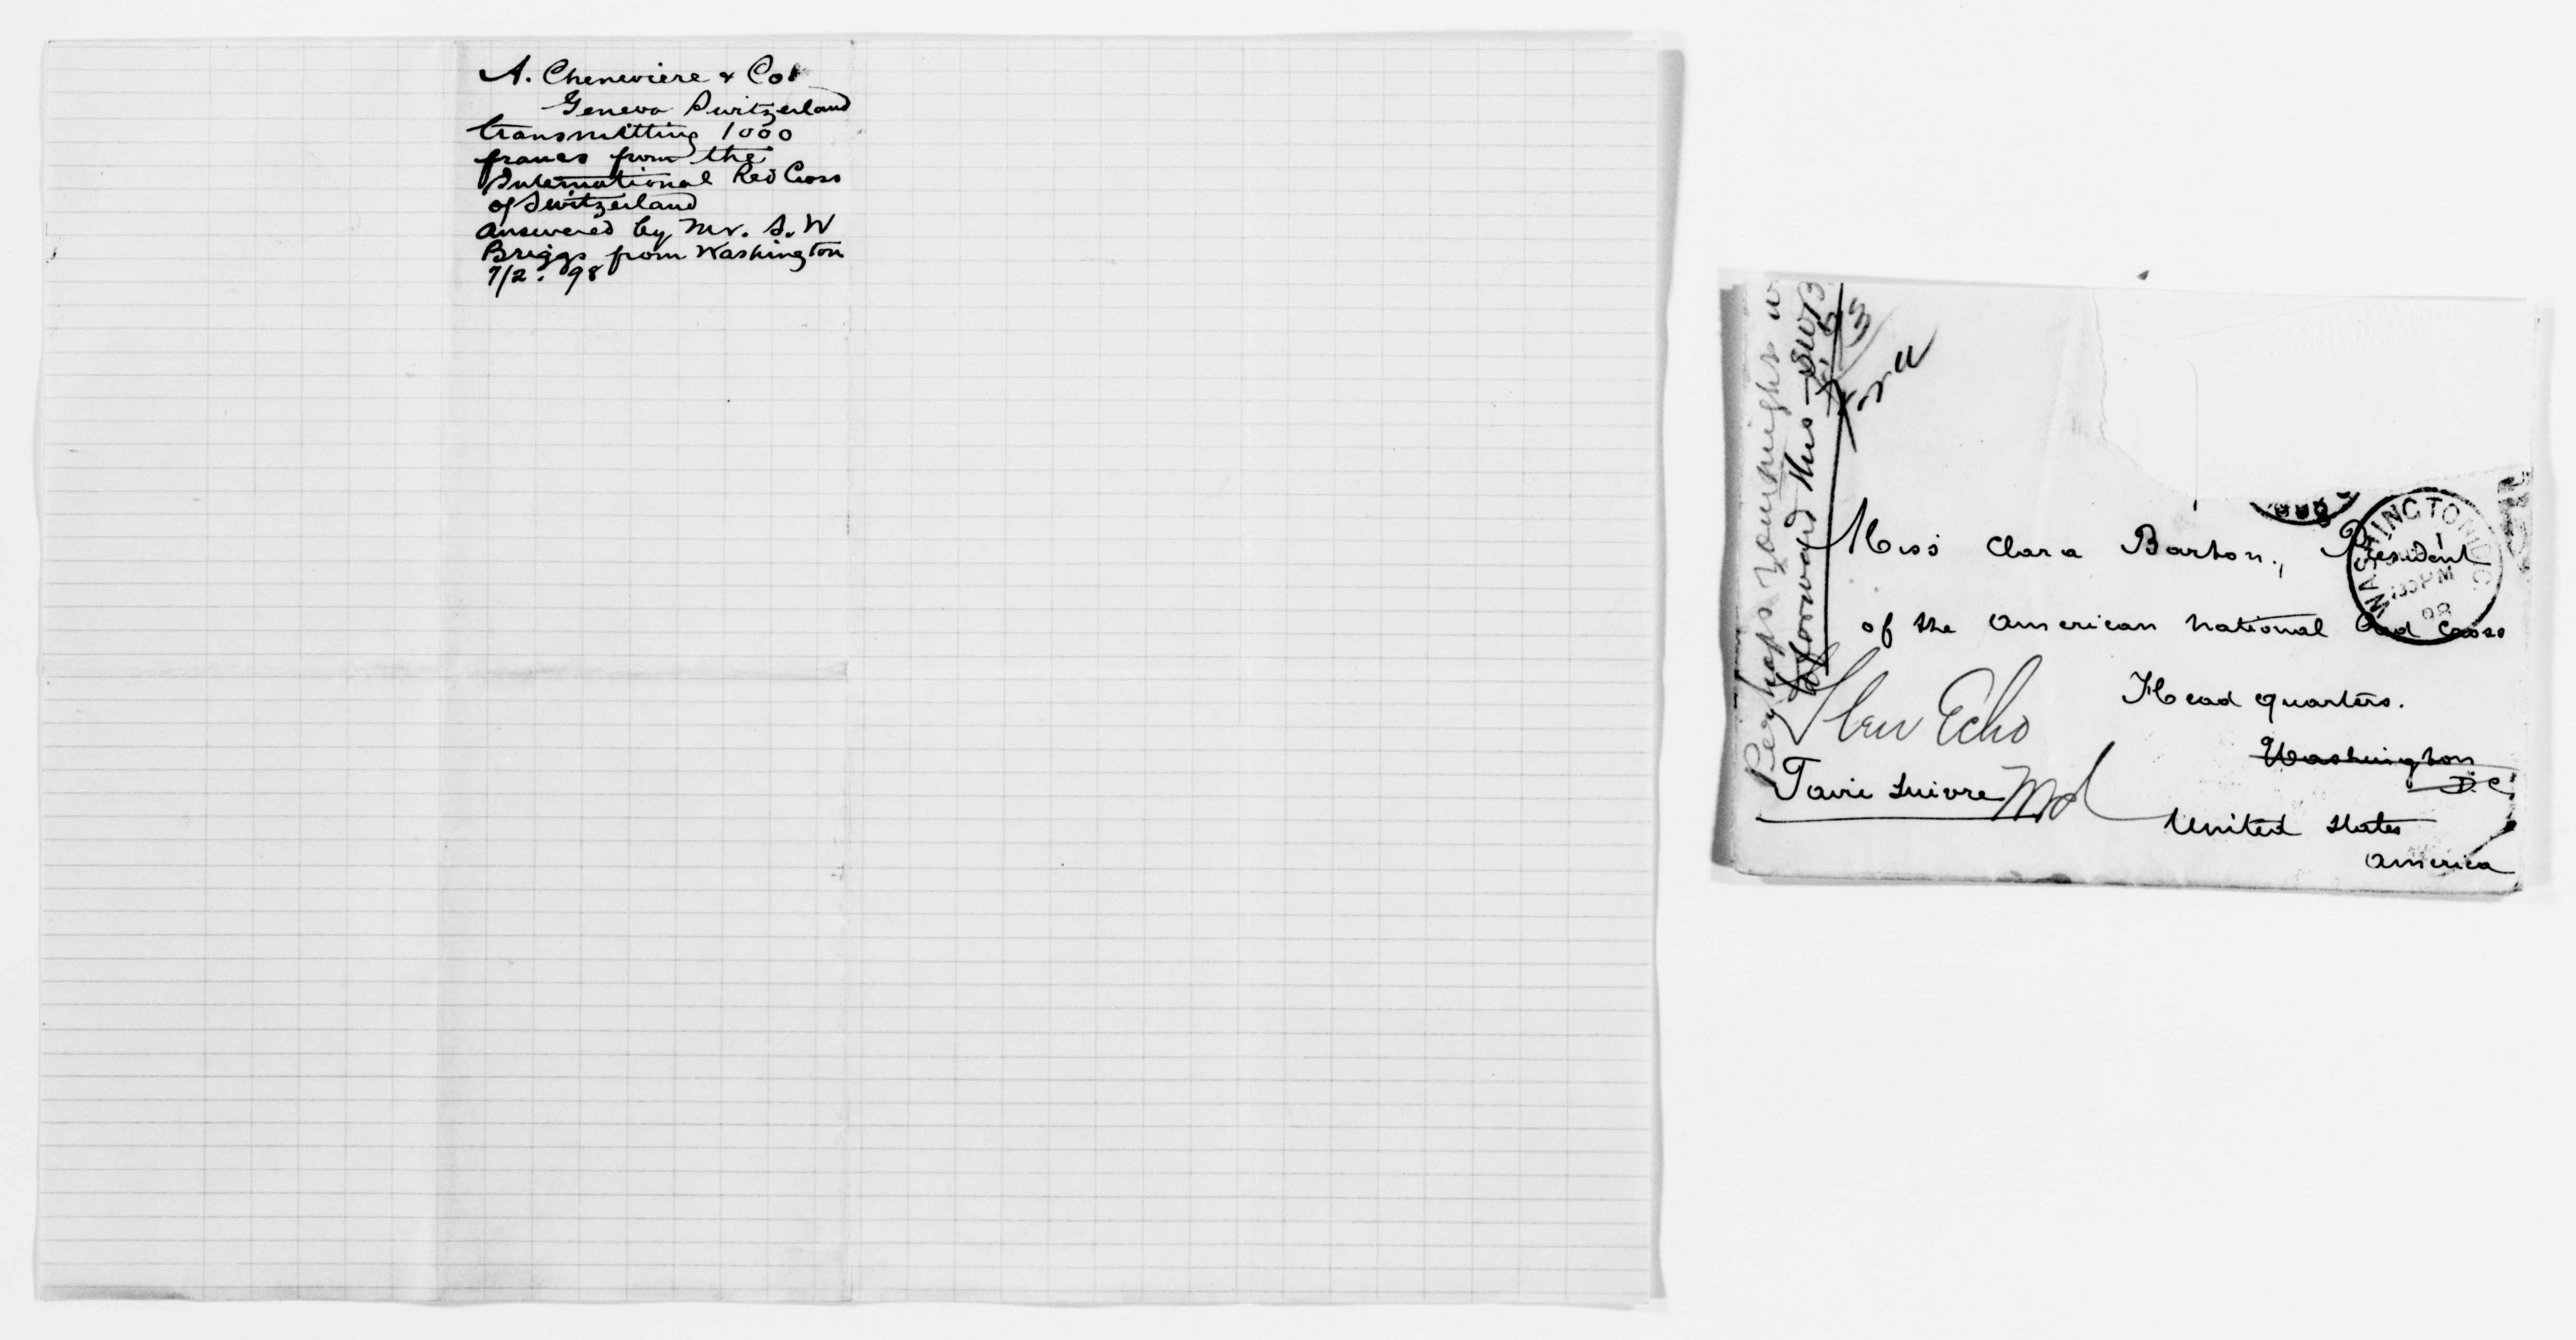 A. Cheneviere & Co
Geneva Switzerland
transmitting 1000
francs from the
International Red Cross
of Switzerland
answered by Mr. S. W
Briggs from Washington
7/2. 98
Perhaps you might
forward this — SWB
Miss Clara Barton., President
of the American national Red Cross
Head quarters.
Washington
D.C.
Glen Echo
Md
Faire suivre
United States
America
WASHINGTON, D.C.
1
130 PM
98